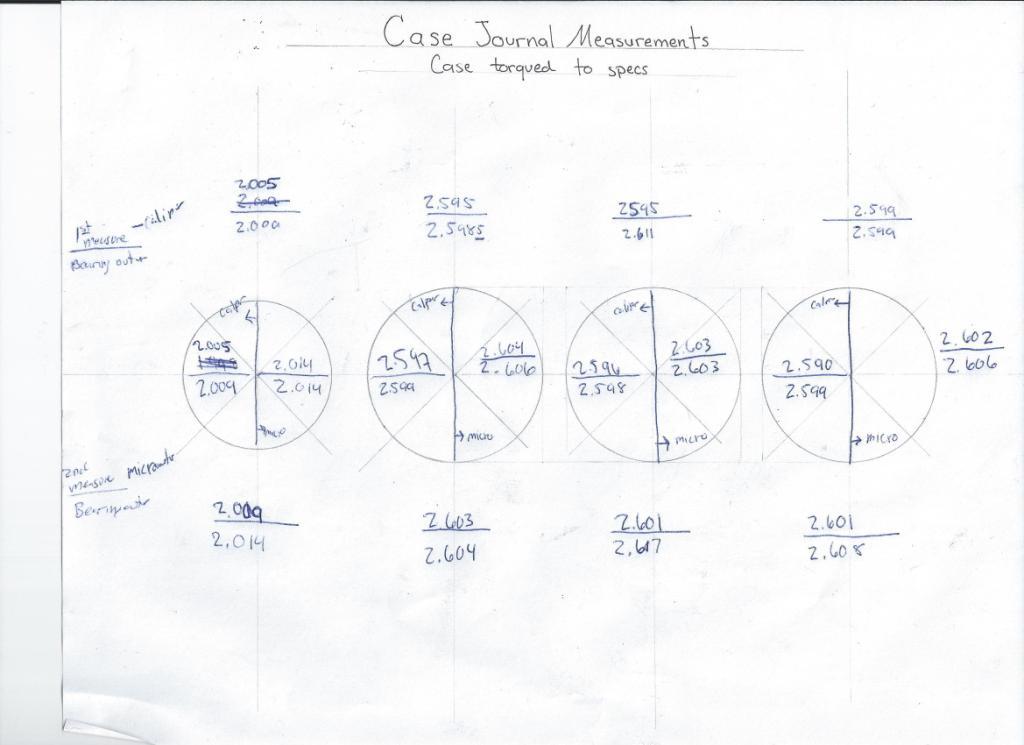 Case Journal Measurements
Case torqued to specs
1st measure - caliper
Bearing outer
2.005
2.009
2.595
2.5985
2595
2.611
2.599
2.599
caliper ←
2.005
2.009
2.014
2.014
→ micro
caliper ←
2.597
2.599
2.604
2.606
→ micro
caliper ←
2.596
2.598
2.603
2.603
→ micro
caliper ←
2.590
2.599
→ micro
2.602
2.606
2nd measure micrometer
Bearing outer
2.009
2.014
2.603
2.604
2.601
2.617
2.601
2.608